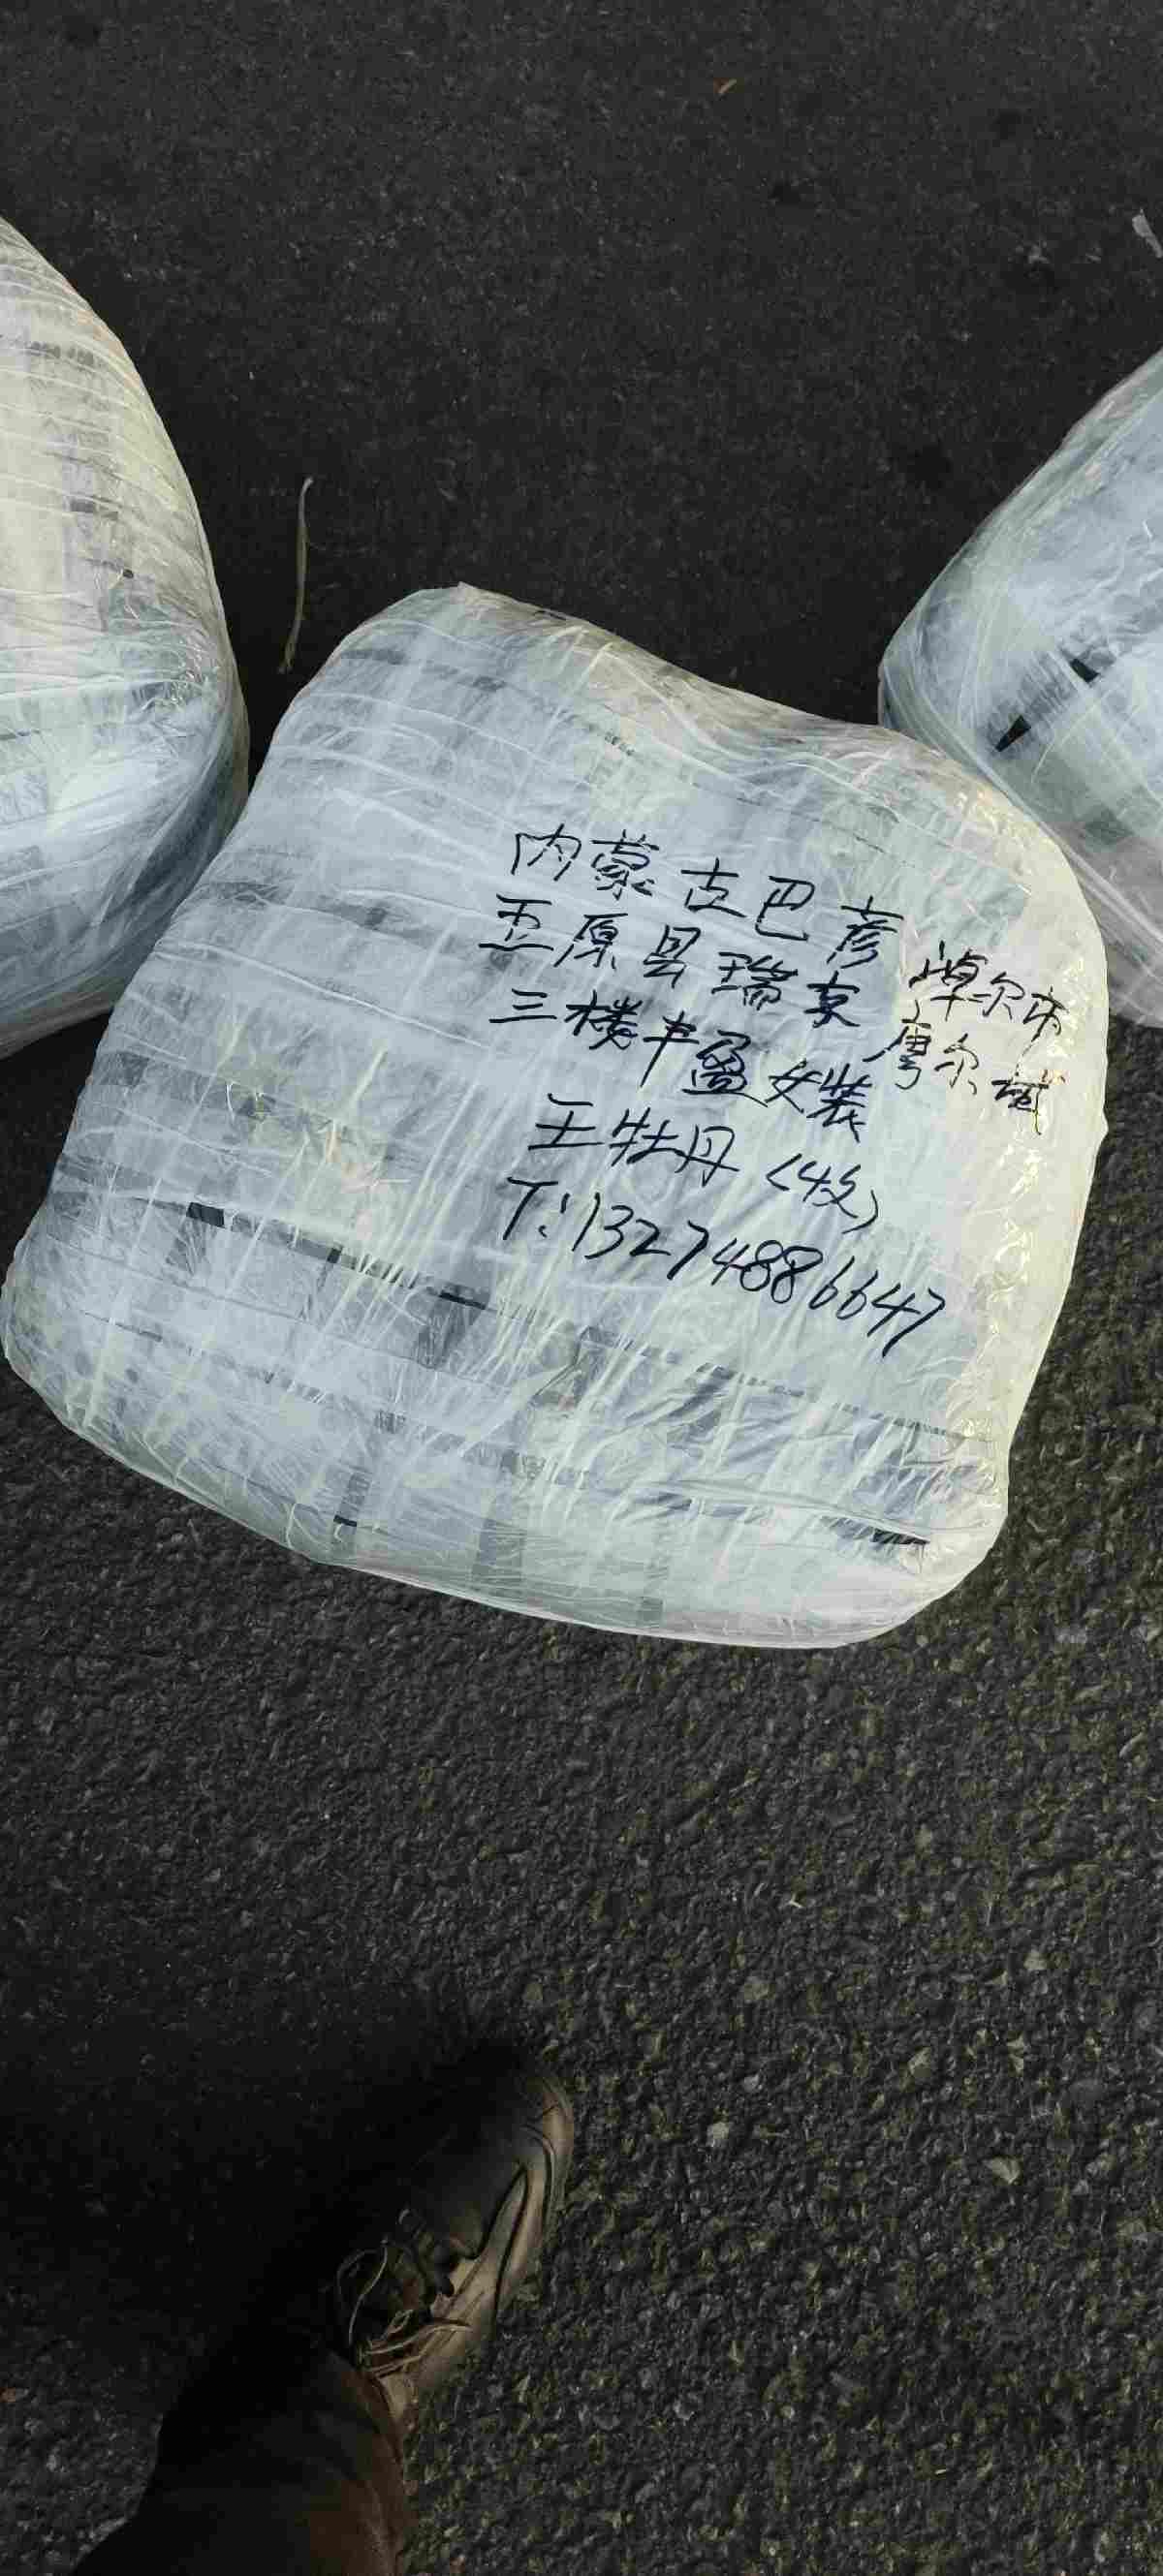 内蒙古巴彦淖尔市
五原县瑞享摩尔城
三楼丰盈女装
王牡丹(收)
T:13274886647